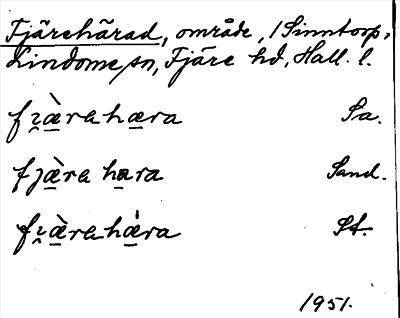 Fjärehärad, område, i Sinntorp,
Lindome sn, Fjäre hd, Hall. l.
fi̯æ̀rahæra Sa.
fjæ̀ra hara Sand.
fi̯æ̀rahǽra St.
1951.